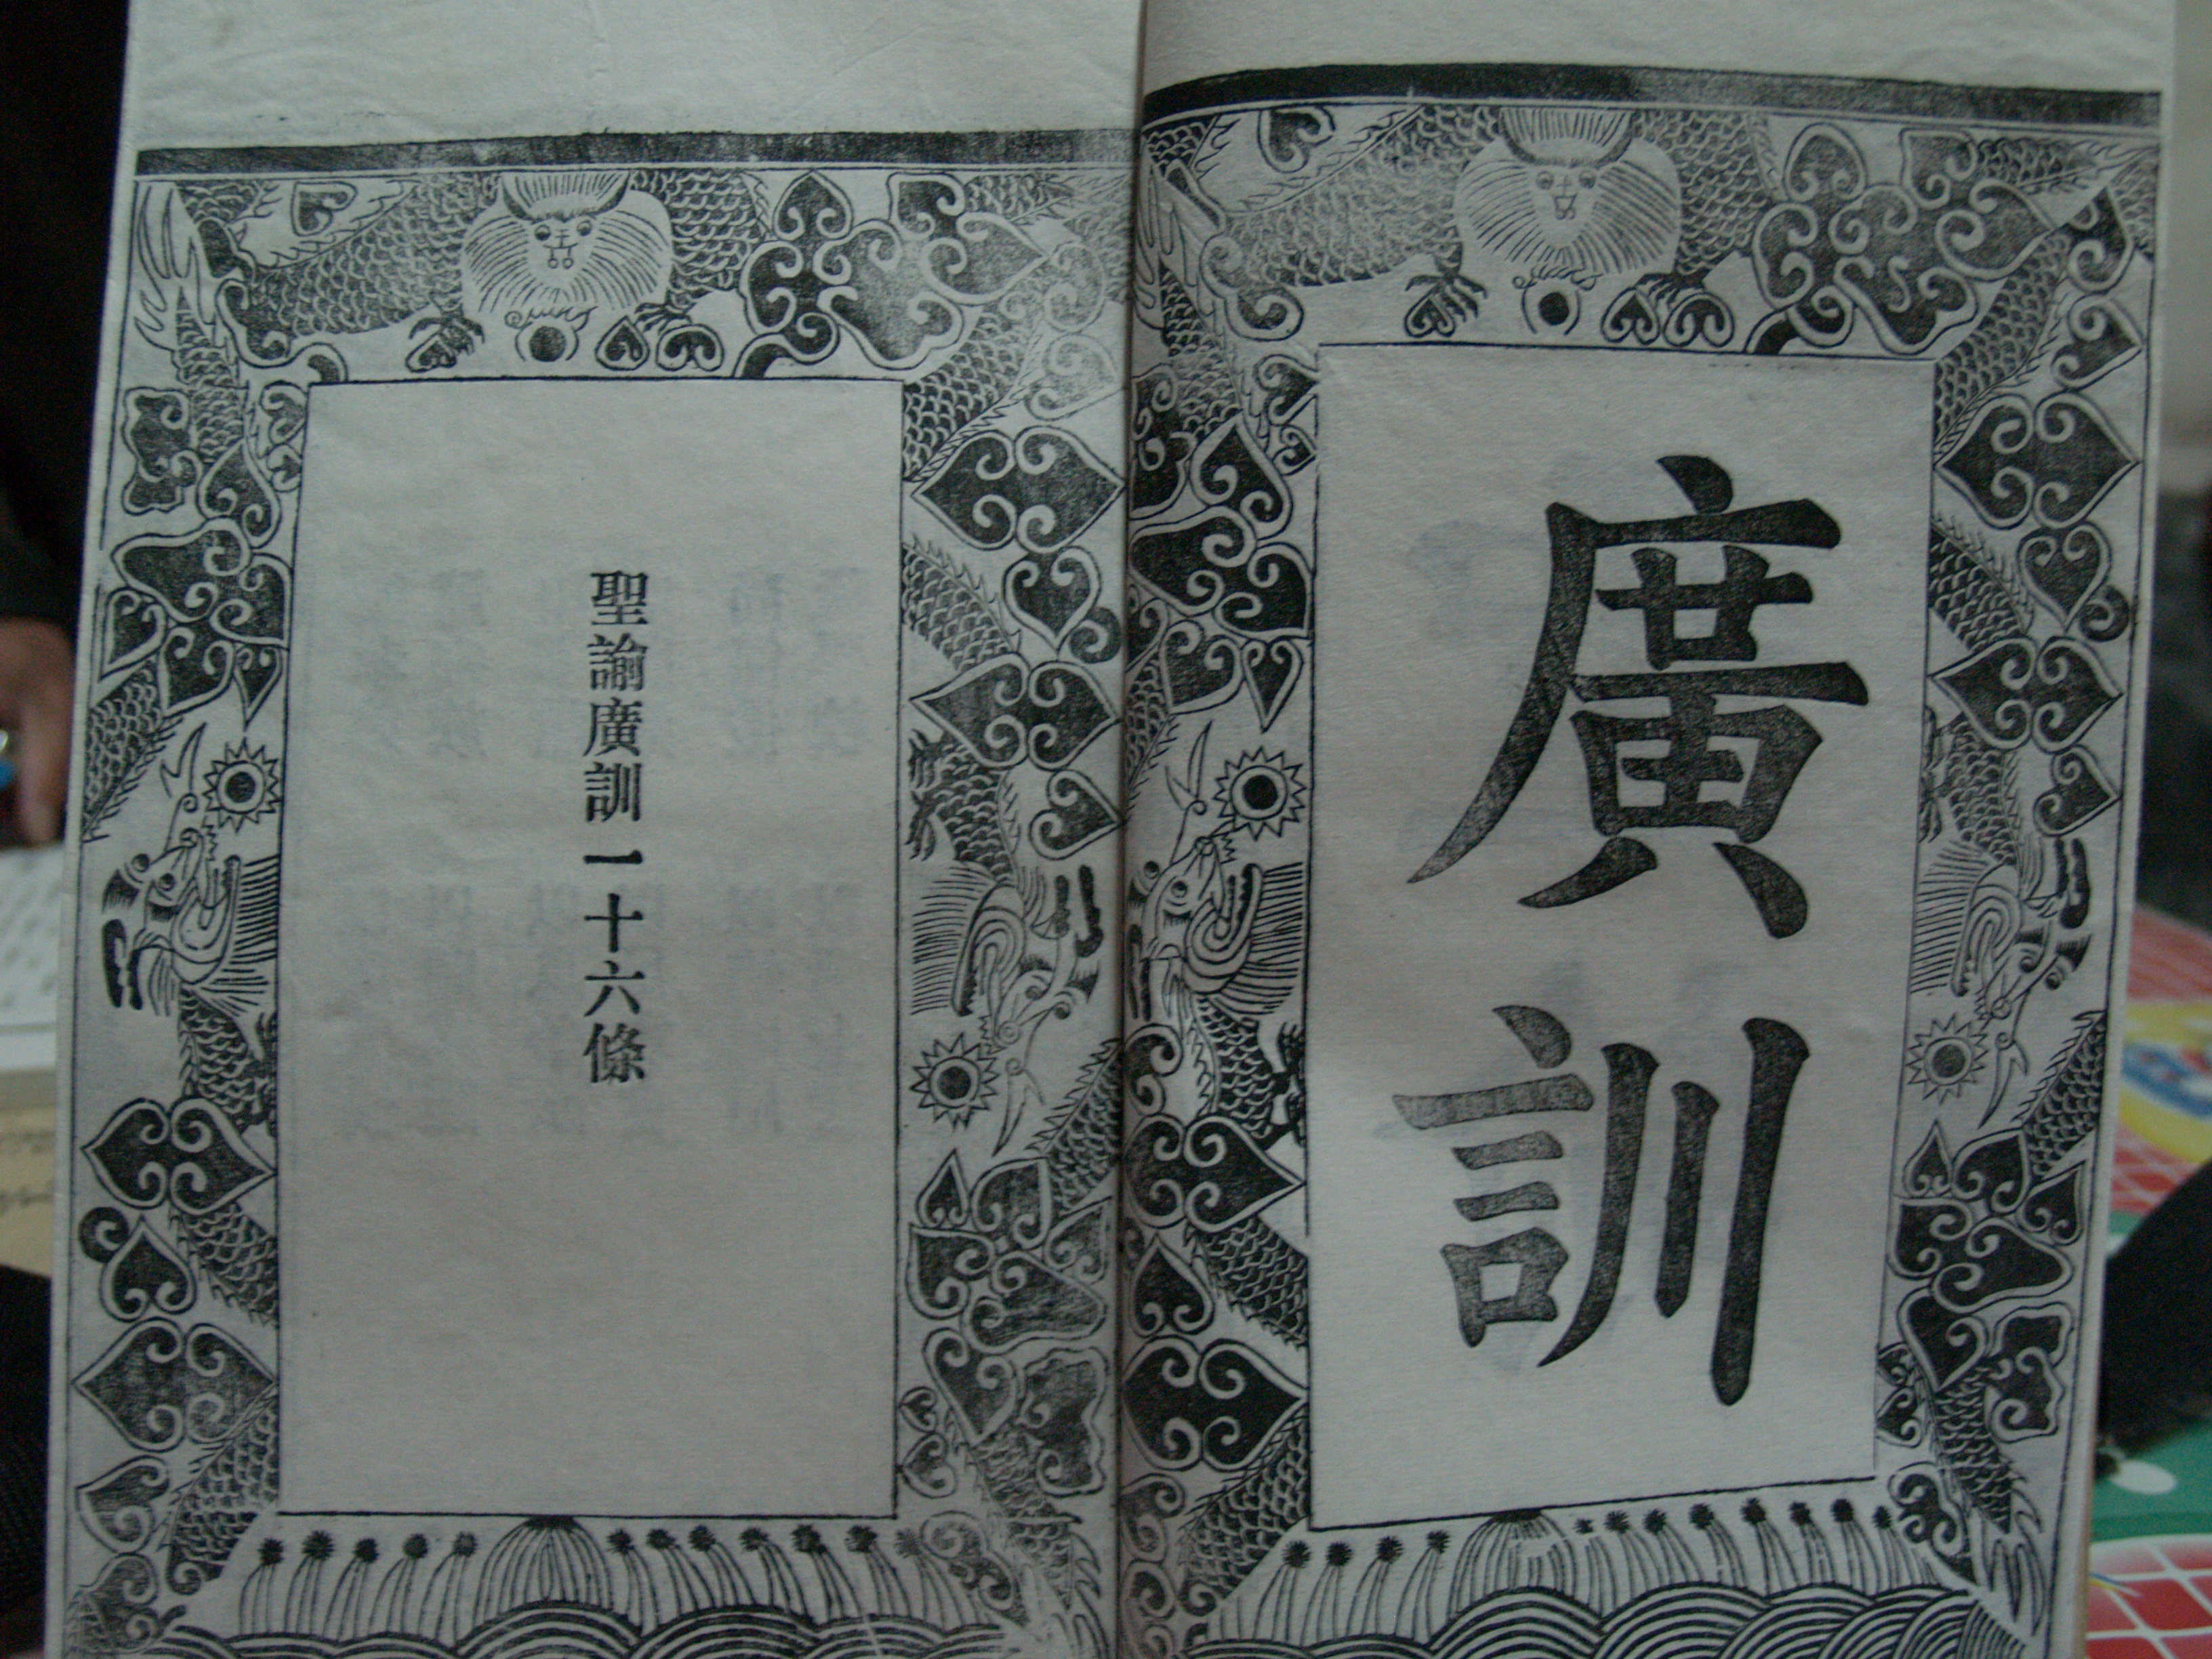 廣訓
聖諭廣訓一十六條